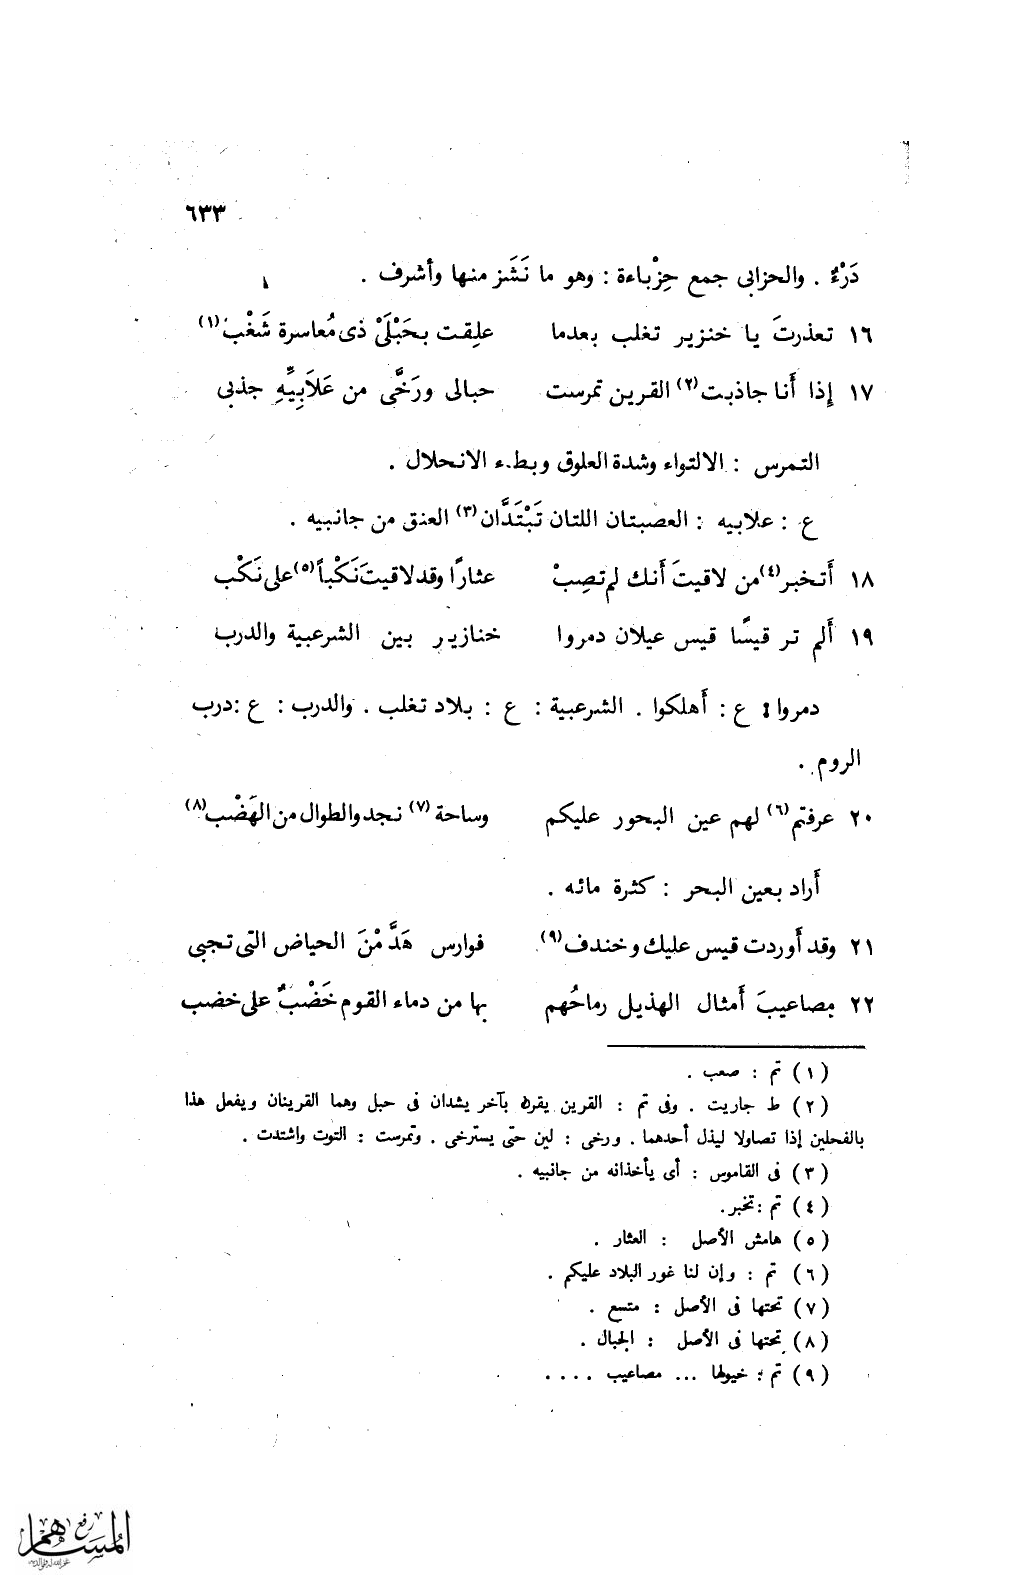 ٦٣٣
دَرْءٌ . والحزابى جمع حِزْباءة : وهو ما نَشَز منها وأشرف .
١٦ تعذرتَ يا خنزير تغلب بعدما علِقت بحَبْلَىْ ذى مُعاسرة شَغْب (١)
١٧ إذا أَنا جاذبت (٢) القرين تمرست حبالى ورَخَّى من عَلَابِيِّهِ جذبى
التمرس : الالتواء وشدة العلوق وبطء الانحلال .
ع : علابيه : العصبتان اللتان تَبْتَدَّان (٣) العنق من جانبيه .
١٨ أَتخبر (٤) من لاقيتَ أَنك لم تصِبْ عثارًا وقد لاقيتَ نَكْباً (٥) على نَكْب
١٩ أَلم تر قيسًا قيس عيلان دمروا خنازير بين الشرعبية والدرب
دمروا : ع : أَهلكوا . الشرعبية : ع : بلاد تغلب . والدرب : ع : درب
الروم .
٢٠ عرفتم (٦) لهم عين البحور عليكم وساحة (٧) نجد والطوال من الهَضْب (٨)
أَراد بعين البحر : كثرة مائه .
٢١ وقد أَوردت قيس عليك وخندف (٩) فوارس هَدَّمْنَ الحياض التى تجبى
٢٢ مصاعيبَ أَمثال الهذيل رماحُهم بها من دماء القوم خَضْبٌ على خضب
(١) تم : صعب .
(٢) ط جاريت . وفى تم : القرين يقرن بآخر يشدان فى حبل وهما القرينان ويفعل هذا
بالفحلين إذا تصاولا ليذل أحدهما . ورخى : لين حتى يسترخى . وتمرست : التوت واشتدت .
(٣) فى القاموس : أى يأخذانه من جانبيه .
(٤) تم : تخبر .
(٥) هامش الأصل : العثار .
(٦) تم : وإن لنا غور البلاد عليكم .
(٧) تحتها فى الأصل : متسع .
(٨) تحتها فى الأصل : الجبال .
(٩) تم : خيولها ... مصاعيب ....
رفع
المساهم